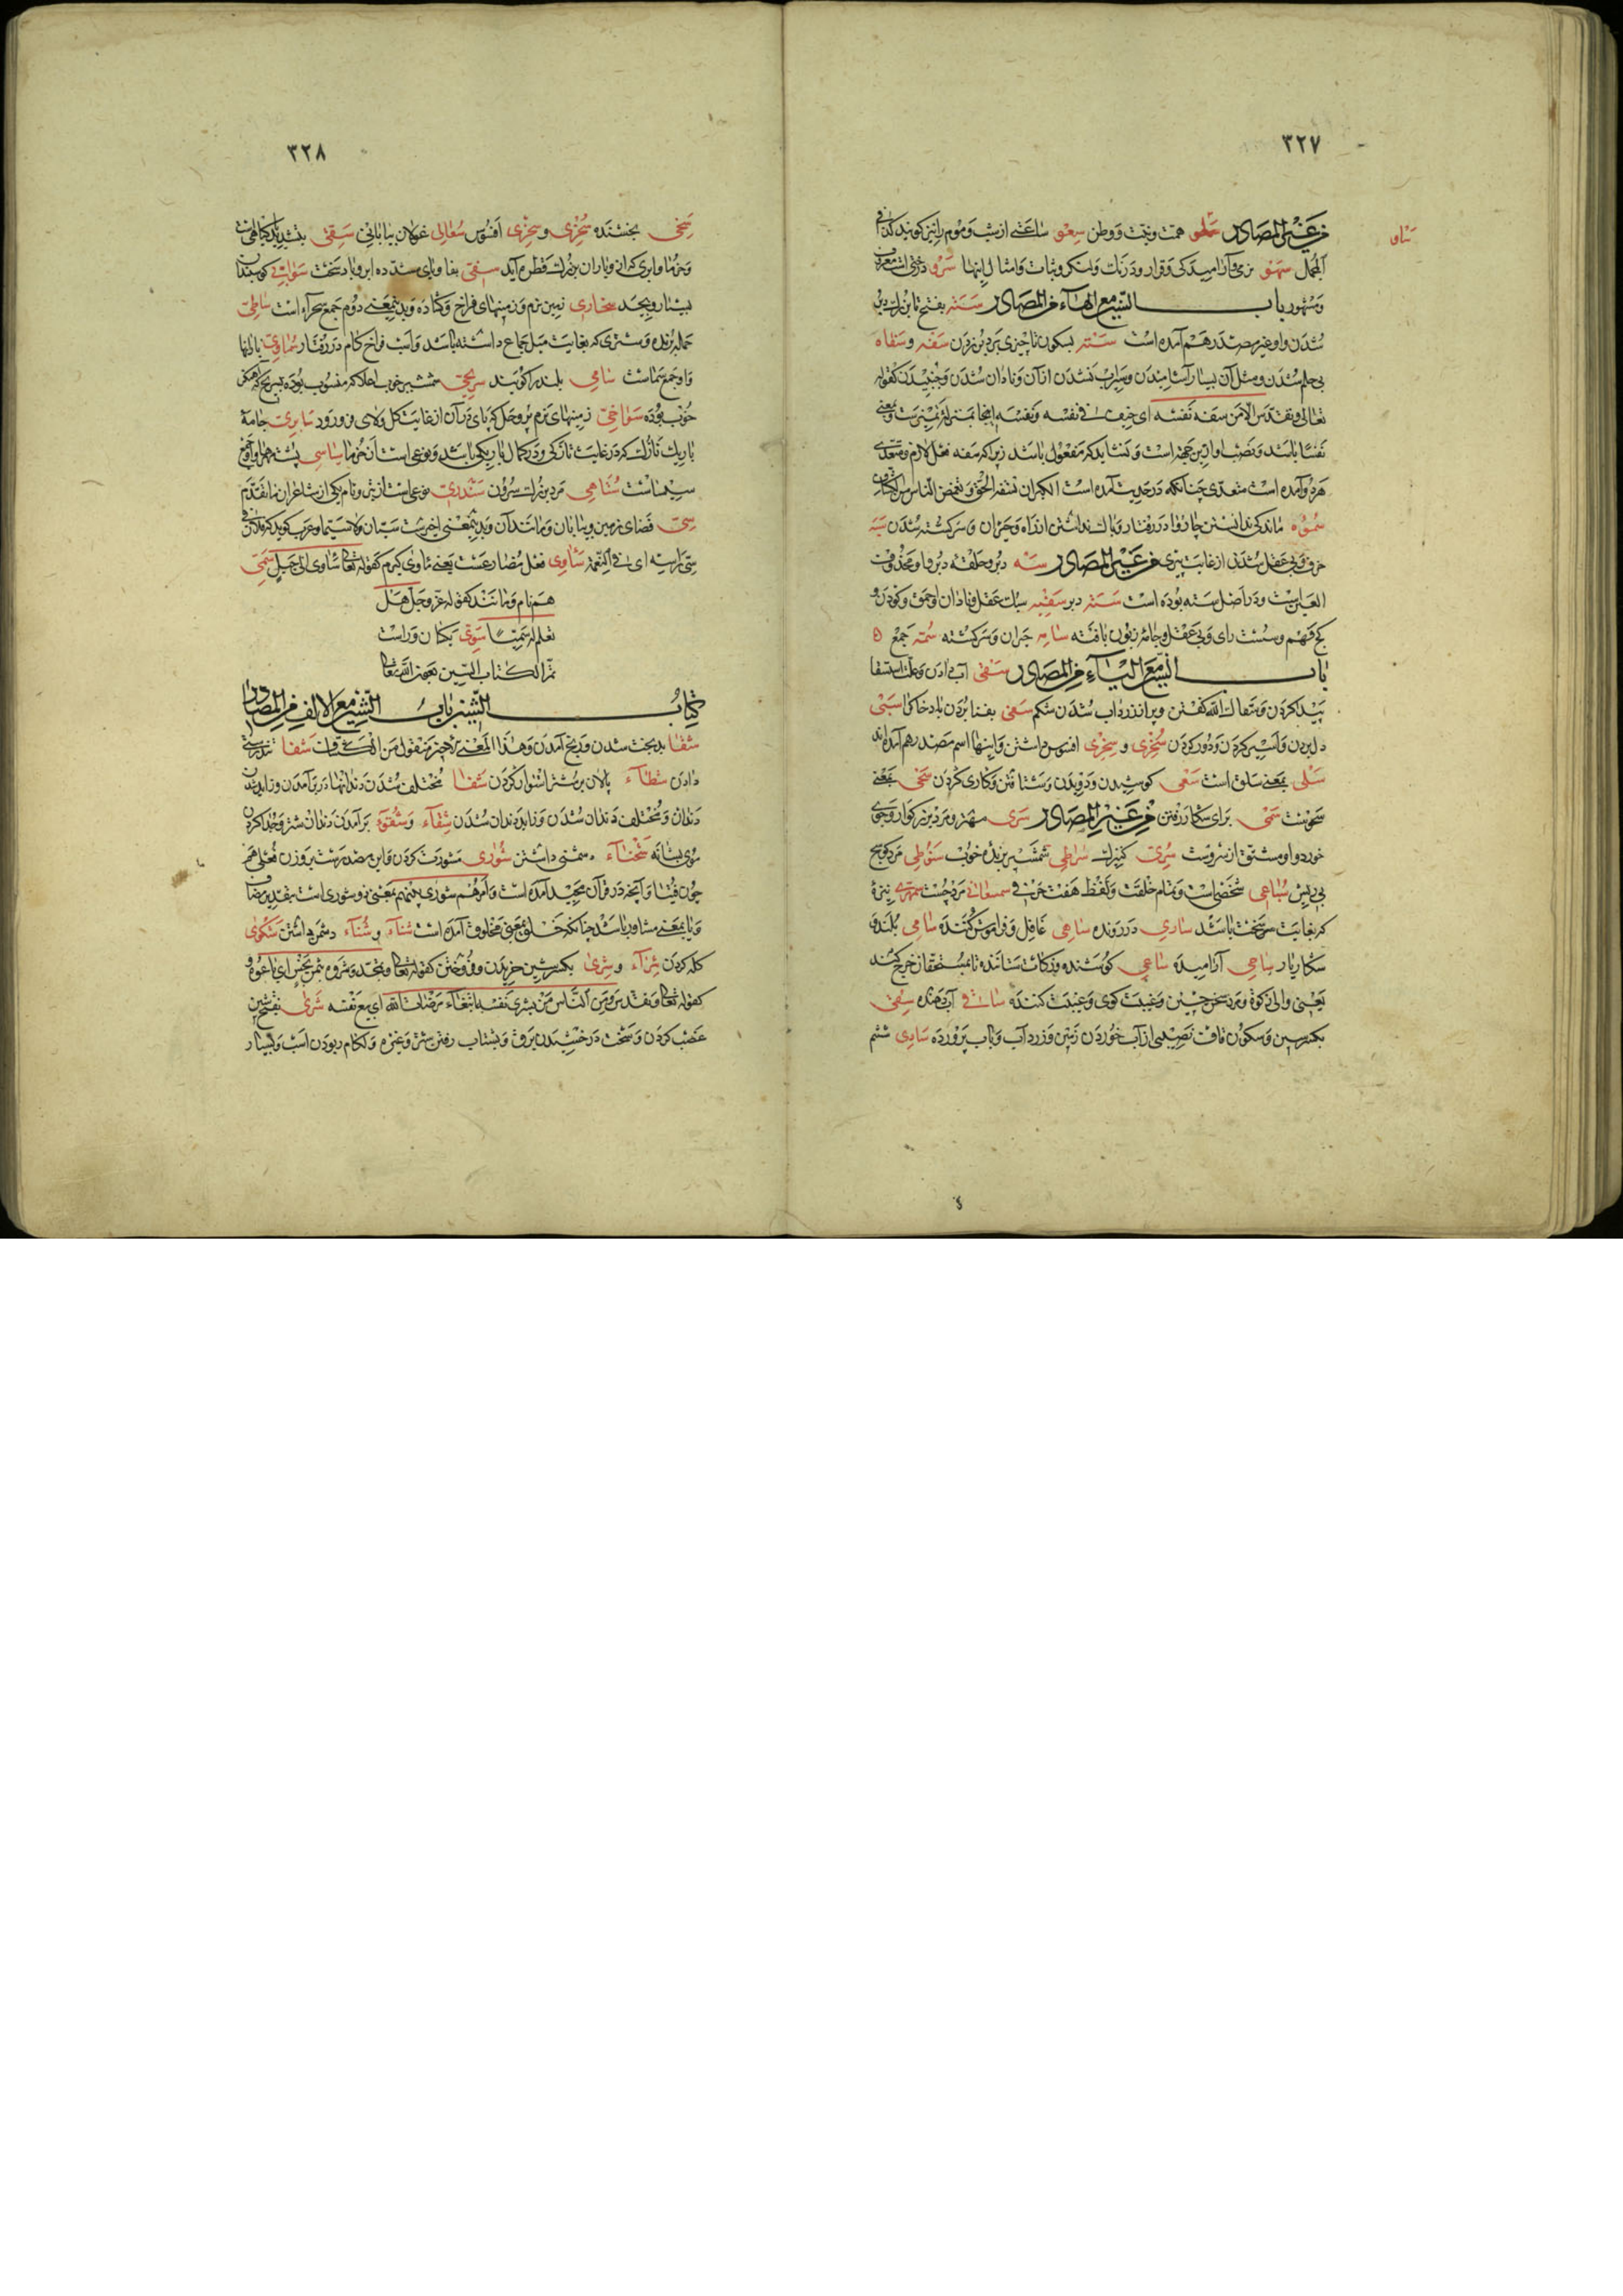 ٣٢٧
من غير المصادر سلو همت ونيت ووطن سعو ساعتى از شب وموم را نيز كويند كذا فى
المجمل سهو نرمى وآراميدكى وقرار ودرنك وامثال اينها سرو درختى است معروف
ومشهور باب السين مع الهاء من المصادر سته بفتح تا بزرك دبر
شدن واو غير مصدر هم آمده است سته بسكون تا چيزى بر دبر زدن سفه وسفاه
بى حلم شدن ومثل آن بسيار آشاميدن وسيراب نشدن از آن ونادان شدن وجنبيدن كقوله
تعالى وتقدس الا من سفه نفسه اى خف فى نفسه ونفسه اينجا
نفسا باشد ونصب او ازين جهة است ونشايد كه مفعول باشد زيرا كه سفه فعل لازم ومتعدى
هردو آمده است متعدى چنانكه در حديث آمده است الكبر ان تسفه الحق وتغمض الناس
سموه ماندگى ندانستن چاروا در رفتار وباك نداشتن از راه وحيران وسركشته شدن سبه
خرف وبى عقل شدن از غايت پيرى من غير المصادر سه دبر وحلقه دبر واو محذوف
العين است ودر اصل سته بوده است سته دبر سفيه سبك عقل ونادان واحمق وكودن و
كج فهم وسست راى وبى عقل وجامه زبون بافته سامه حيران وسركشته سمه جمع
باب السين مع الياء من المصادر سقى آب دادن وعلت استسقا
پيدا كردن وسقاك الله كفتن وپر اندر زرداب شدن شكم سفى بفنا بردن باد خاك را سبى
دل بردن واسير كردن ودور كردن سخرى وسخرى افسوس داشتن واينها اسم مصدر هم آمده اند
سلى بمعنى سلق است سعى كوشيدن ودويدن وشتافتن وكارى كردن سخى بمعنى
سخونت سمى براى شكار رفتن من غير المصادر سرى مهتر ومرد بزركوار وجوى
خورد واو مشتق از سروست سرى كنيزك سراطى شمشير برنده خوب سنوطى مرد كوسج
بى ريش سباعى شخصى است وتمام خلقت ولفظ هفت حرفى سمسعانى مرد چست سمهرى نيزۀ
كه بغايت سخت باشد سارى در رونده ساهى غافل وفراموش كننده سامى بلند و
شكار يار ساجى آراميده ساعى كوشنده وزكات ستاننده تا بمستحقان خرج كنند
يعنى والى زكوة ومرد سخن چين وغيبت كوى وغيبت كننده ساقى آب دهنده سقى
بكسر سين وسكون قاف نصيبى از آب خوردن زمين وزرداب وباب پرورده سادى ششم
٣٢٨
سخى بخشنده سخرى وسخرى افسوس سعالى غولان بيابانى سقى بتشديد ياء
وخرما وابرى كران وباران بزرك قطره آيد سفى بفا وياى مشدده ابر وباد سخت سوابى كوسبندان
بسيار وبيحد سخارى زمين نرم وزمينهاى فراخ وكشاده وبدين معنى دوم جمع سحراء است ساطى
حمله برنده وشترى كه بغايت ميل جماع داشته باشد واسب فراخ كام در رفتار سماوى بالها
واو جمع سماست سامى بلند را كويند سريجى شمشير خوب اعلا كه منسوب بوده بسريج كه آهنكر
خوب بوده سواخى زمينهاى نرم پر وحل كه پاى در آن از غايت كل ولاى فرو رود سابرى جامۀ
باريك نازك كه در غايت نازكى ودر كمال باريكى باشد ونوعى است از خرما سياسى پشتهاء
سيساست سناهى مرد بزرك سرون سندرى نوعى است از تير ونام يكى از شاعران ما تقدم
سى فضاى زمين وبيابان ومانند آن وبدين معنى اخير است سيان ولا سيما وعرب كويد
سى راسه اى فى النعمة ساوى فعل مضارعست يعنى ماوى كيرم كقوله تعالى ساوى الى جبل سمى
هم نام ومانند كقوله عز وجل هل
تعلم له سميا سوى يكسان وراست
تم الكتاب السين بعون الله تعالى
كتاب الشين باب الشين مع الالف من المصادر
شقا بدبخت شدن ورنج آمدن وهذا المعنى الاخير منقول من الكشاف شفا تندرستى
دادن شطاء پالان بر شتر استوار كردن شغا مختلف شدن دندانها در بر آمدن وزايد شدن
دندان ومختلف دندان شدن وزايد دندان شدن شقاء وشقوه بر آمدن دندان شتر وجدا كردن
موى بشانه شحناء دشمنى داشتن شورى مشورت كردن واين مصدريست بر وزن فعلى هم
چون فتيا وآنچه در قرآن مجيد آمده است وامرهم شورى بينهم بمعنى ذو شورى است بتقدير مضاف
ويا بمعنى مشاور باشد چنانكه خلق بمعنى مخلوق آمده است شناء وشناء دشمن داشتن شكوى
كله كردن شراء وشرى بكسر شين خريدن وفروختن كقوله تعالى وتقدس وشروه بثمن بخس اى باعوه و
كقوله تعالى وتقدس ومن الناس من يشرى نفسه ابتغاء مرضات الله اى يبيع نفسه شرى بفتح شين
غضب كردن وسخت درخشيدن برق وبشتاب رفتن شتر وغيره ولكام ربودن اسب وبسيار